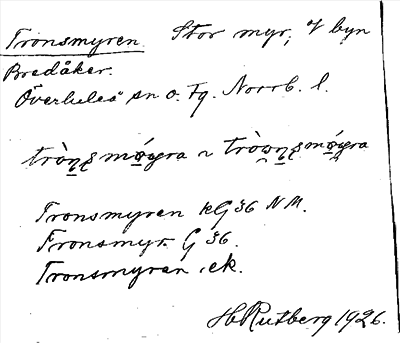 Tronsmyren. Stor myr, i byn
Bredåker.
Överluleå sn o. Fg. Norrb. l.
Tronsmyren kG 36 NM.
Tronsmyr. G 36.
Tronsmyran, ek.
HRutberg 1926.